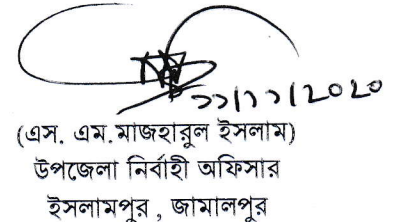 ১১/১১/2020
(এস. এম.মাজহারুল ইসলাম)
উপজেলা নির্বাহী অফিসার
ইসলামপুর , জামালপুর